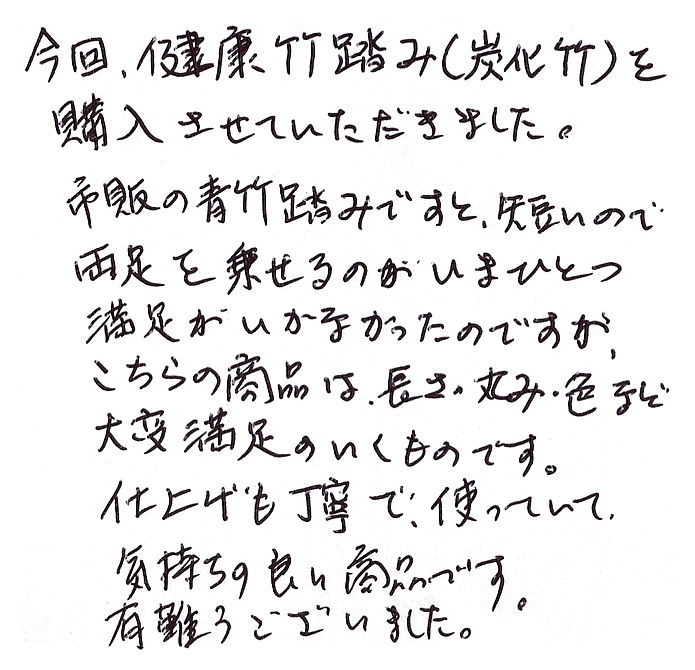 今回、健康竹踏み(炭化竹)を
購入させていただきました。
市販の青竹踏みですと、短いので
両足を乗せるのがいまひとつ
満足がいかなかったのですが、
こちらの商品は、長さ・丸み・色など
大変満足のいくものです。
仕上げも丁寧で、使っていて、
気持ちの良い商品です。
有難うございました。